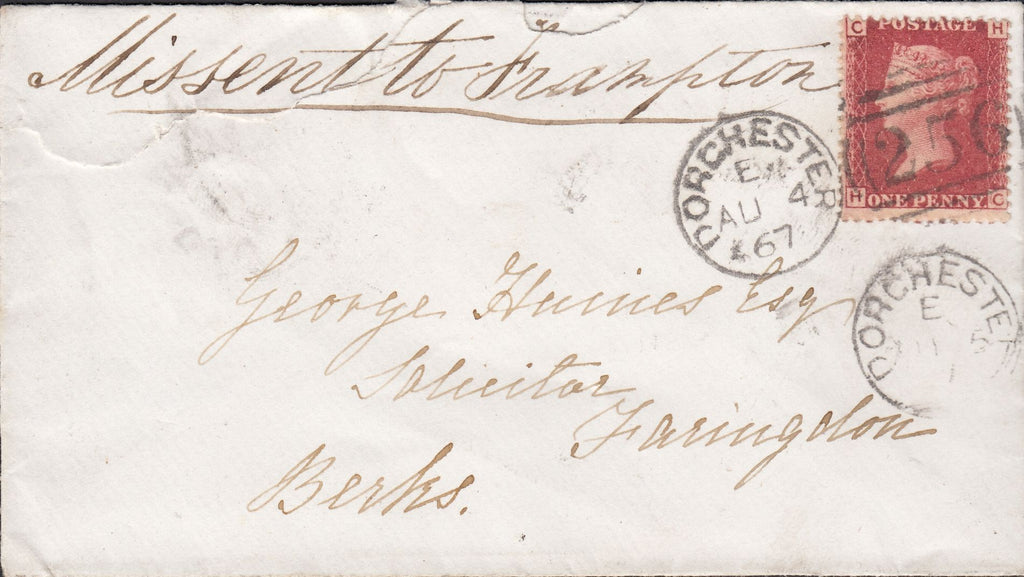 Missent to Frampton
C POSTAGE H
H ONE PENNY C
25
DORCHESTER
E
AU 4
67
DORCHESTER
E
5
George Haines Esq
Solicitor
Faringdon
Berks.